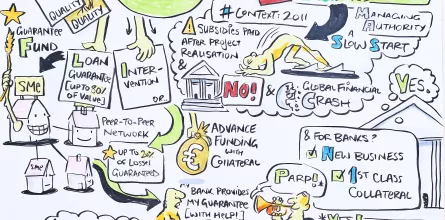 QUALITY
FOR
QUALITY
# CONTEXT: 2011
MANAGING
AUTHORITY
A
SLOW START
GUARANTEE
FUND
! SUBSIDIES PAID
AFTER PROJECT
REALISATION &
NO!
& GLOBAL FINANCIAL
CRASH
YES.
SME
LOAN
GUARANTEE
[UP TO 80%
OF VALUE]
INTER-
VENTION
OR..
PEER-TO-PEER
NETWORK
UP TO 20%
OF LOSSES
GUARANTEED
SME
SME
€
ADVANCE
FUNDING
WITH
COLLATERAL
& FOR BANKS?
NEW BUSINESS
1ST CLASS
COLLATERAL
PARP!
BANK PROVIDES
MY GUARANTEE
[WITH HELP!]